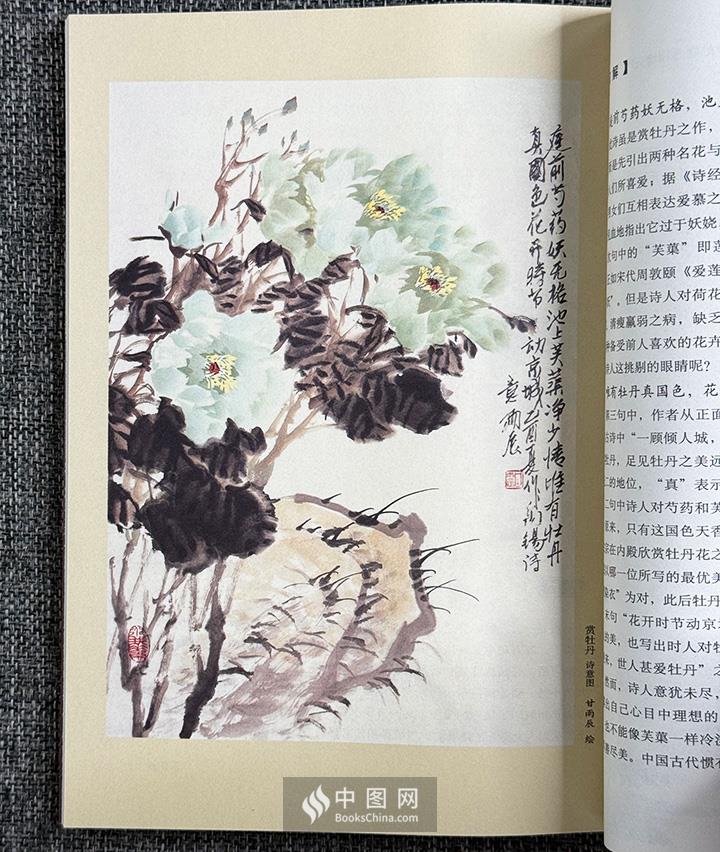 庭前芍药妖无格池上芙蕖净少情唯有牡丹
真國色花开時节动京城乙酉夏作刘禹锡诗
雨辰
赏牡丹 诗意图 甘雨辰 绘
解】
前芍药妖无格,池
诗虽是赏牡丹之作,
是先引出两种名花与
们所喜爱;据《诗经
男女们互相表达爱慕之
血地指出它过于妖娆,
句中的“芙蕖”即莲
正如宋代周敦颐《爱莲
”,但是诗人对荷花
,清瘦羸弱之病,缺乏
种备受前人喜欢的花卉
人这挑剔的眼睛呢?
有牡丹真国色,花
三句中,作者从正面
古诗中“一顾倾人城,
牡丹,足见牡丹之美远
的地位,“真”表示
二句中诗人对芍药和芙
来,只有这国色天香
宗在内殿欣赏牡丹花之
以哪一位所写的最优美
染衣”为对,此后牡丹
末句“花开时节动京
的美,也写出时人对牡
来,世人甚爱牡丹”之
然而,诗人意犹未尽,
出自己心目中理想的
也不能像芙蕖一样冷
善尽美。中国古代惯
中图网
BooksChina.com